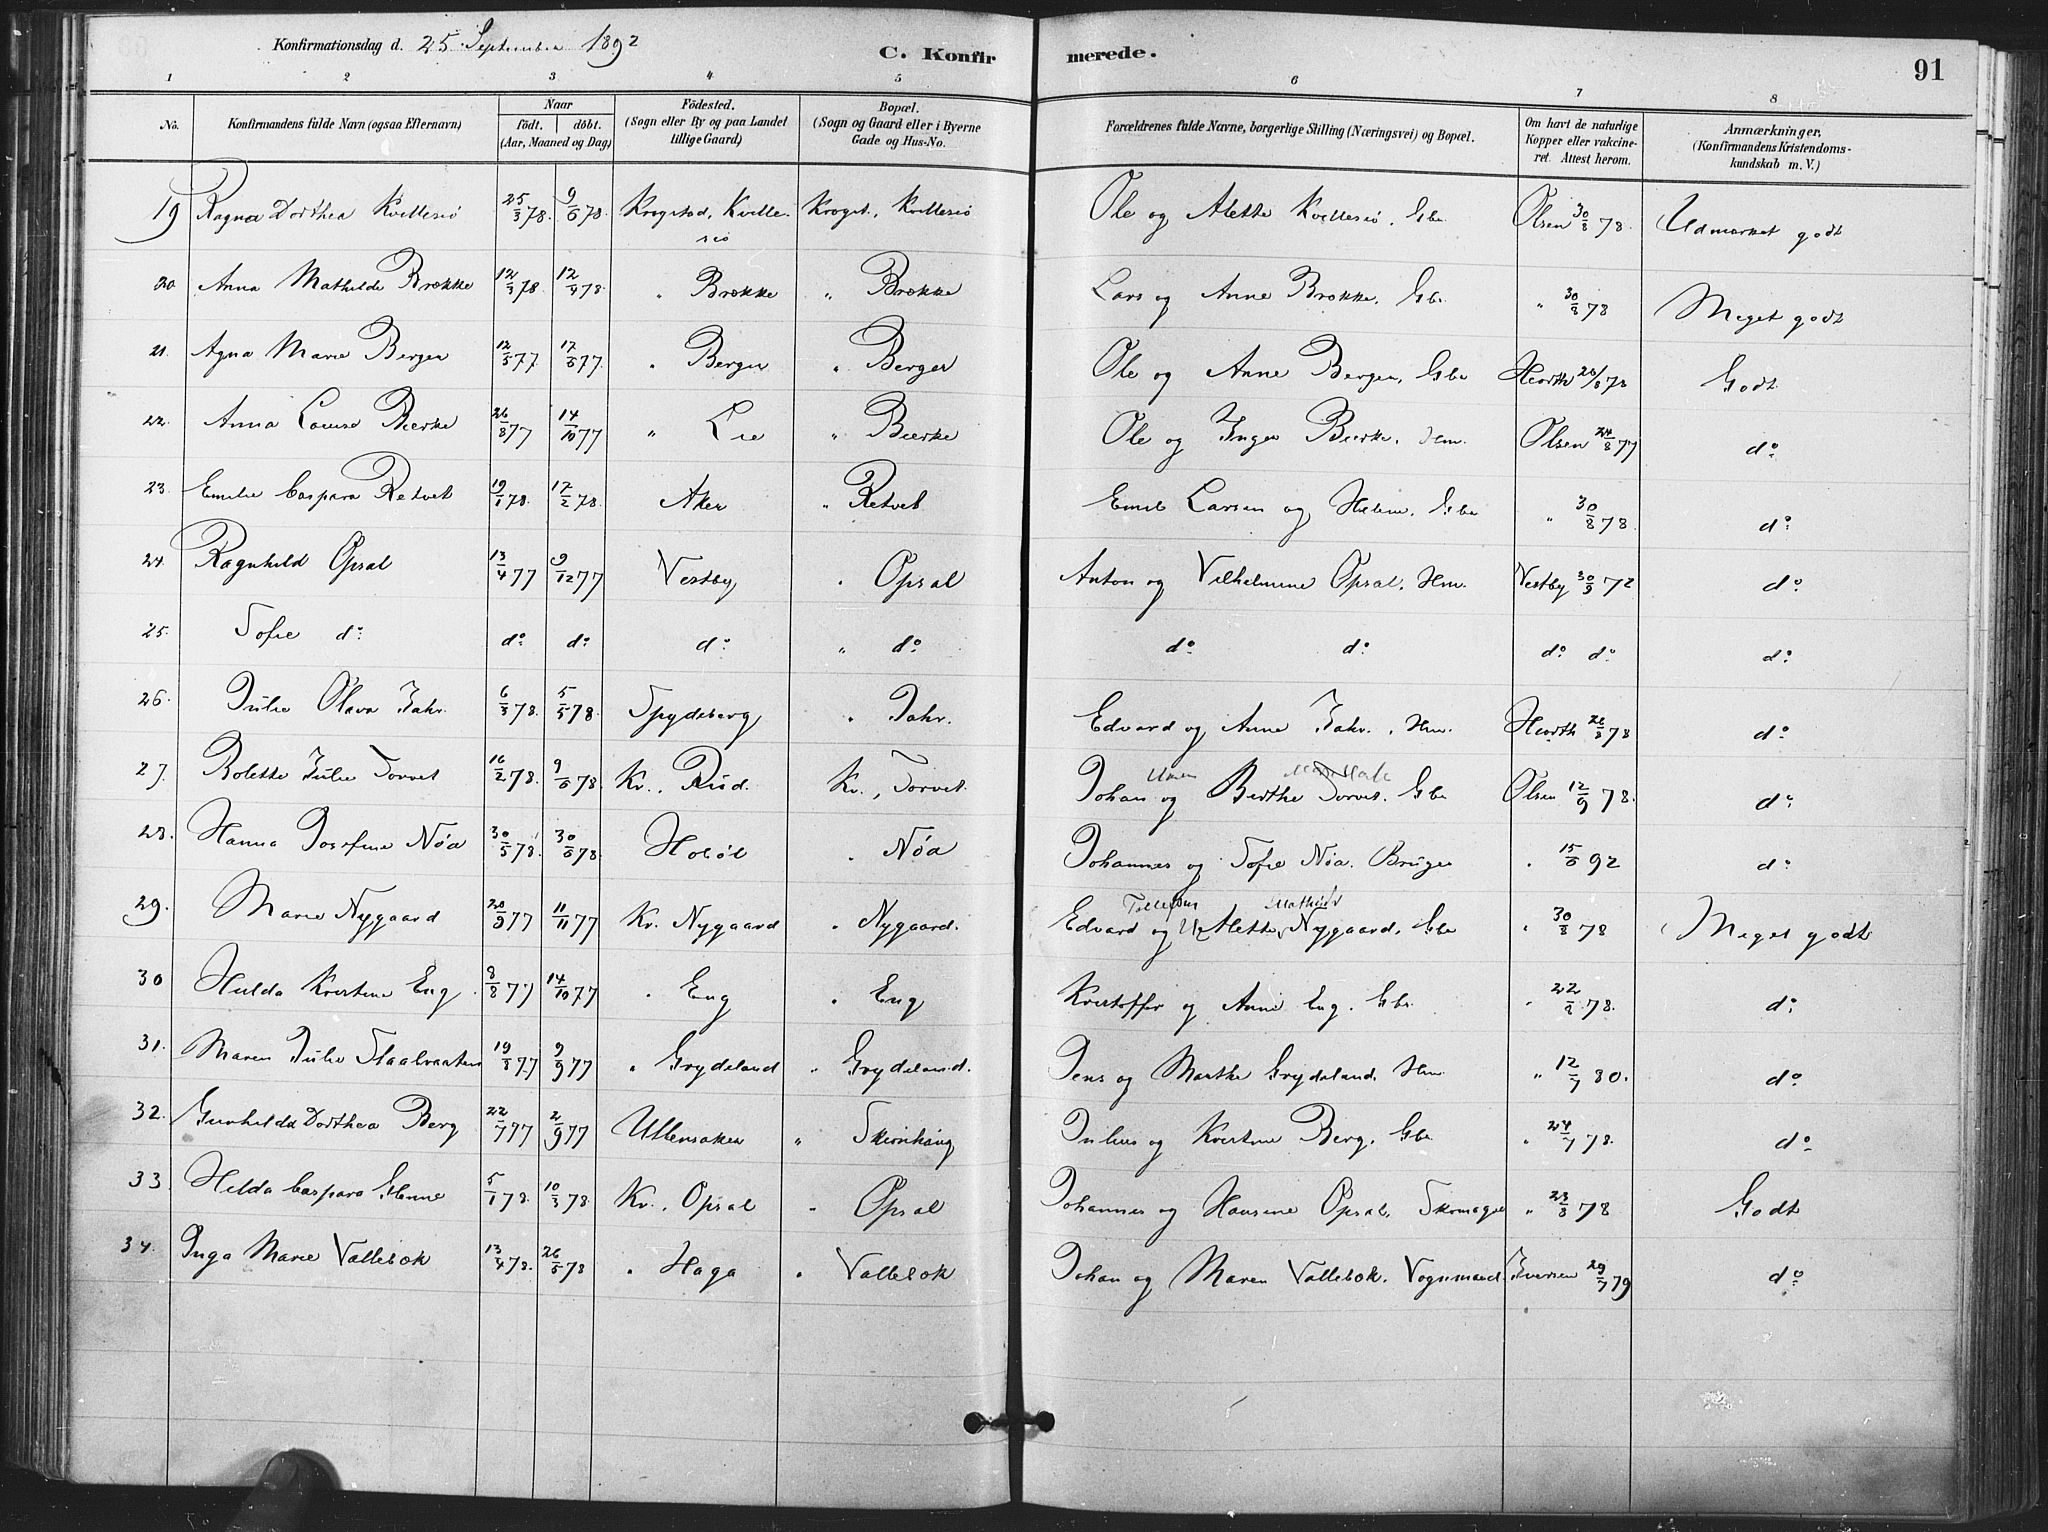 Konfirmationsdag d. 25 September 1892 C. Konfirmerede. 91
1 2 3 4 5 6 7 8
No. Konfirmandens fulde Navn (ogsaa Efternavn) Naar født. døbt. (Aar, Maaned og Dag) Födested. (Sogn eller By og paa Landet tillige Gaard) Bopæl. (Sogn og Gaard eller i Byerne Gade og Hus-No. Forældrenes fulde Navne, borgerlige Stilling (Næringsvei) og Bopæl. Om havt de naturlige Kopper eller vakcineret. Attest herom. Anmærkninger. (Konfirmandens Kristendomskundskab m. V.)
19 Ragna Dorthea Kvillesiö 25/3 78. 9/6 78. Krogstad, Kvillesiö Krogst., Kvillesiö Ole og Alette Kvillesiö, Gbr Olsen 30/8 78. Udmærket godt
20 Anna Mathilde Brække 12/3 78. 12/4 78. " Brække " Brække Lars og Anne Brække, Gbr " 30/8 78 Meget godt
21. Agna Marie Berger 12/5 77. 17/6 77. " Berger " Berger Ole og Anne Berger, Gbr Hiorth 26/8 78 Godt
22. Anna Lovise Bierke 26/8 77 14/10 77 " Lie " Bierke Ole og Inger Bierke, Hm. Olsen 24/8 77 do
23. Emilie Caspara Retvet 19/1 78. 17/2 78. Aker " Retvet Emil Larsen og Helene, Gbr " 30/8 78. do
24. Ragnhild Opsal 13/4 77 9/12 77 Vestby " Opsal Anton og Vilhelmine Opsal, Hm. Vestby 30/9 72 do
25. Sofie do do do do " do do do do do do
26. Julie Olava Jahr 6/3 78. 5/5 78. Spydeberg " Jahr. Edvard og Anne Jahr, Hm. Hiorth 26/8 78 do
27. Bolette Julie Torvet 16/2 78. 9/6 78. Kr., Rud. Kr., Torvet. Johan og Berthe Torvet, Gbr Olsen 12/9 78. do
28. Hanna Josefine Nøa 30/5 78. 30/6 78. Hobøl " Nøa Johannes og Sofie Nøa. Bruger " 15/6 92 do
29. Marie Nygaard 20/9 77 11/11 77 Kr. Nygaard " Nygaard. Edvard og Alette Nygaard, Gbr " 30/8 78 Meget godt
30 Hulda Kristine Eng 8/8 77 14/10 77 " Eng " Eng Kristoffer og Anne Eng. Gbr " 22/8 78. do
31. Maren Julie Staalvaaten 19/8 77 9/9 77 " Grydeland " Grydeland. Jens og Marthe Grydeland, Hm " 12/7 80. do
32. Gunhilda Dorthea Berg 22/7 77 2/9 77 Ullensaker " Skionhaug Julius og Kristine Berg, Gbr " 24/7 78. do
33. Hilda Caspara Glenne 5/1 78. 10/3 78 Kr., Opsal " Opsal Johannes og Hansine Opsal, Skomager " 23/8 78 Godt
34. Inga Marie Vallebok 13/4 78. 26/5 78 " Haga " Vallebok Johan og Maren Vallebok. Vognmand Iversen 29/7 79 do